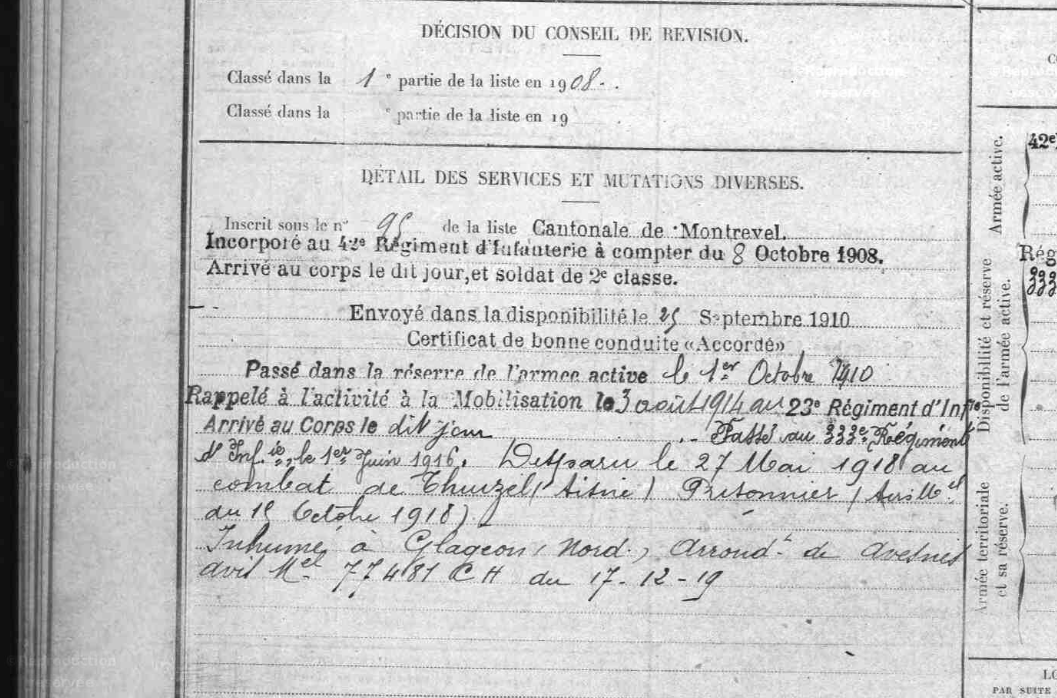 DÉCISION DU CONSEIL DE REVISION.
Classé dans la 1e partie de la liste en 1908.
Classé dans la e partie de la liste en 19
DÉTAIL DES SERVICES ET MUTATIONS DIVERSES.
Inscrit sous le n° 95 de la liste Cantonale de Montrevel.
Incorporé au 42e Régiment d'Infanterie à compter du 8 Octobre 1908.
Arrivé au corps le dit jour, et soldat de 2e classe.
Envoyé dans la disponibilité le 25 Septembre 1910
Certificat de bonne conduite «Accordé»
Passé dans la réserve de l'armee active le 1er Octobre 1910
Rappelé à l'activité à la Mobilisation le 3 août 1914 au 23e Régiment d'Infie
Arrivé au Corps le dit jour Passé au 333e Régiment
d'Inf.ie, le 1er Juin 1916. Disparu le 27 Mai 1918 au
combat de (Aisne) Prisonnier (Avis Mel
du Octobre 1918)
Inhumé à Glageon (Nord) Arrondt de Avesnes
avis Mel 77481 CH du 17-12-19
Armée active.
Disponibilité et réserve de l'armée active.
Armée territoriale et sa réserve.
42e
Rég
333
PAR SUITE
Reproduction
réservée